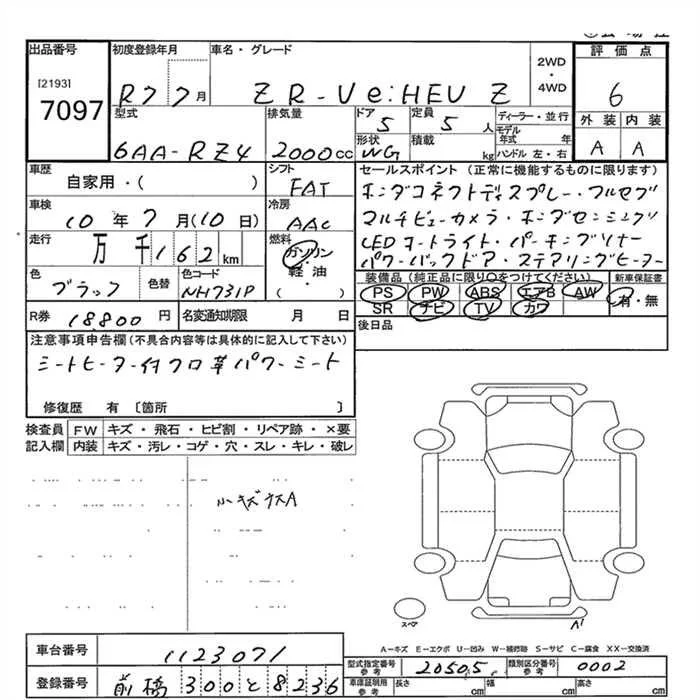 出品番号
[2193]
7097
初度登録年月
R7 7月
車名・グレード
ZR-V e:HEV Z
2WD
・
4WD
評価点
6
型式
6AA-RZ4
排気量
2000cc
ドア
5
定員
5人
ディーラー・並行
モデル年式 年
形状
WG
積載
kg
ハンドル 左・右
外装 内装
A A
車歴
自家用・( )
シフト
FAT
セールスポイント (正常に機能するものに限ります)
ホンダコネクトディスプレー・フルセグ
マルチビューカメラ・ホンダセンシング
LEDオートライト・パーキングソナー
パワーバックドア・ステアリングヒーター
車検
10年7月(10日)
冷房
AAC
走行
万千162km
燃料
ガソリン
・
軽・油
( )
色
ブラック
色替
色コード
NH731P
装備品 (純正品に限り○をつけてください)
PS PW ABS エアB AW
SR ナビ TV カワ
新車保証書
有・無
R券 18,800円
名変通知期限 月 日
後日品
注意事項申告欄(不具合内容等は具体的に記入して下さい)
シートヒーター付クロ革パワーシート
修復歴 有 〔箇所 〕
検査員記入欄
FW キズ・飛石・ヒビ割・リペア跡・×要
内装 キズ・汚レ・コゲ・穴・スレ・キレ・破レ
小キズナスA
スペア
A1
A-キズ E-エクボ U-凹み W-補修跡 S-サビ C-腐食 XX-交換済
車台番号
1123071
登録番号
前橋 300 と 8236
型式指定番号
参考
20505
類別区分番号
参考
0002
車庫証明用
参考
長さ cm 幅 cm 高さ cm